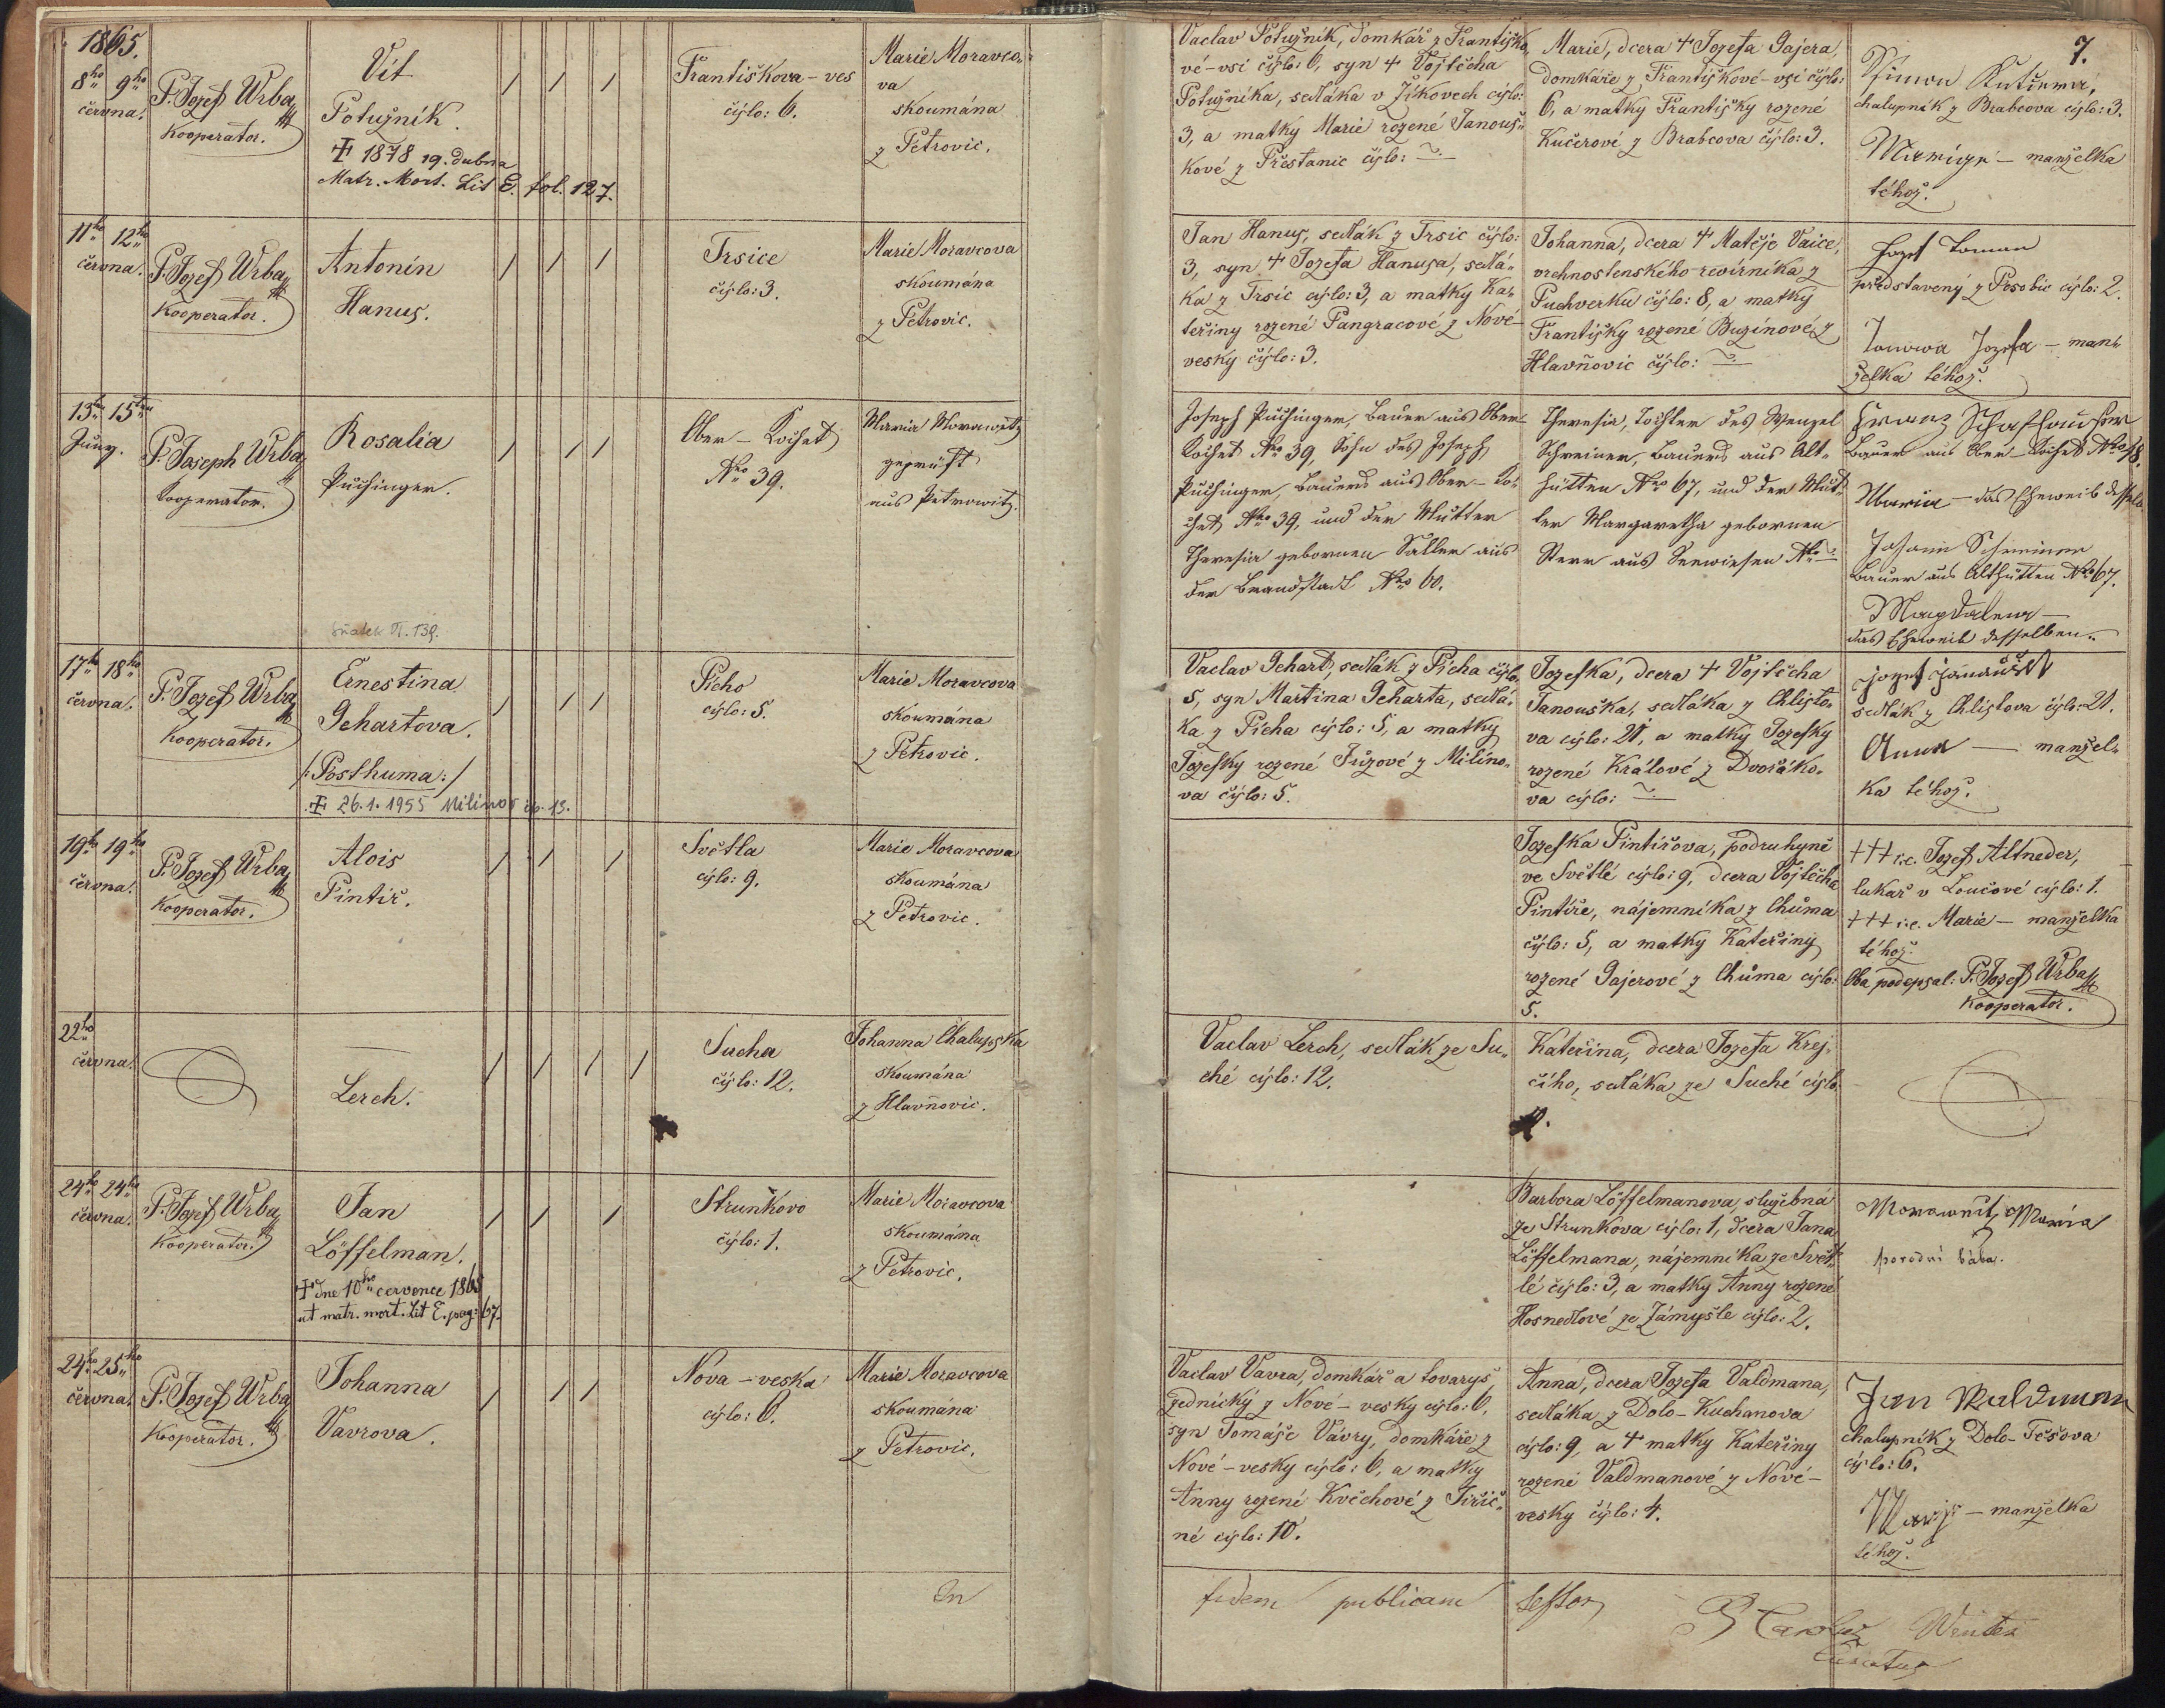 1865.
8ho 9ho
června.
P. Jozef Wrba
Kooperator.
Vít
Potužník.
✝ 1878 19. dubna
Matr. Mort. Lit E. fol. 127.
Františkova-ves
číslo: 6.
Marie Moravco-
va
skoumána
z Petrovic.
Vaclav Potužník, domkář z Františko-
vé-vsi číslo: 6, syn ✝ Vojtěcha
Potužníka, sedláka v Žíkovech číslo:
3, a matky Marie rozené Janouš-
kové z Přestanic číslo:
Marie, dcera ✝ Jozefa Gajera,
domkáře z Františkové-vsi číslo:
6, a matky Františky rozené
Kučerové z Brabcova číslo: 3.
7.
chalupník z Brabcova číslo: 3.
manželka
téhož.
11ho 12ho
června.
P. Jozef Wrba
Kooperator.
Antonín
Hanuş.
Trsice
číslo: 3.
Marie Moravcova
skoumána
z Petrovic.
Jan Hanuş, sedlák z Trsic číslo:
3, syn ✝ Jozefa Hanusa, sedlá-
ka z Trsic číslo: 3, a matky Ka-
teřiny rozené Pangracové z Nové-
vesky číslo: 3.
Johanna, dcera ✝ Matěje Vaice,
vrchnostenského revírníka z
Puchverku číslo: 8, a matky
Františky rozené Buzínové z
Hlavňovic číslo:
Jozef Toman
představený z Psobic číslo: 2.
Jozefa – man-
želka téhož.
13ten 15ten
Juny.
P. Joseph Wrba
Kooperator.
Rosalia
Puchinger.
Ober-Kochet
Nro 39.
Maria Morawetz
geprüft
aus Petrowitz.
Joseph Puchinger, Bauer aus Ober-
Kochet Nro 39, Sohn des Joseph
Puchinger, Bauers aus Ober-Ko-
chet Nro 39, und der Mutter
Theresia gebornen Sattler aus
der Brandstadt Nro 60.
Theresia, Tochter des Wenzel
Schreiner, Bauers aus Alt-
hütten Nro 67, und der Mut-
ter Margaretha gebornen
Sterr aus Seewiesen Nro
Franz Schafhauser
Bauer aus Ober-Kochet Nro 18.
Maria – das Eheweib desselb.
Johann Schreiner
Bauer aus Althütten Nro 67.
Magdalena –
das Eheweib desselben.
17ho 18ho
června.
P. Jozef Wrba
Kooperator.
Ernestina
Gehartova.
/: Posthuma :/
✝ 26.1.1955 Milínov čp. 13.
Pícho
číslo: 5.
Marie Moravcova
skoumána
z Petrovic.
Vaclav Gehart, sedlák z Pícha číslo:
5, syn Martina Geharta, sedlá-
ka z Pícha číslo: 5, a matky
Jozefky rozené Fůzové z Milíno-
va číslo: 5.
Jozefka, dcera ✝ Vojtěcha
Janouška, sedláka z Chlisto-
va číslo: 21, a matky Jozefky
rozené Králové z Dvořáko-
va číslo:
Jozef Janoušek
sedlák z Chlistova číslo: 21.
Anna – manžel-
ka téhož.
19ho 19ho
června.
P. Jozef Wrba
Kooperator.
Alois
Pintíř.
Světla
číslo: 9.
Marie Moravcova
skoumána
z Petrovic.
Jozefka Pintířova, podruhyně
ve Světlé číslo: 9, dcera Vojtěcha
Pintíře, nájemníka z Chůma
číslo: 5, a matky Kateřiny
rozené Gajerové z Chůma číslo:
5.
+++ i.e. Jozef Altneder,
lukař v Loučové číslo: 1.
+++ i.e. Marie – manželka
téhož.
Oba podepsal: P. Jozef Wrba
Kooperator.
22ho
června.
Lerch.
Sucha
číslo: 12.
Johanna Chalupska
skoumána
z Hlavňovic.
Vaclav Lerch, sedlák ze Su-
ché číslo: 12.
Kateřina, dcera Jozefa Krej-
čího, sedláka ze Suché číslo:
24ho 24ho
června.
P. Jozef Wrba
Kooperator.
Jan
Löffelman.
✝ dne 10ho července 1865
ut matr. mort. Lit E. pag: 67.
Strunkovo
číslo: 1.
Marie Moravcova
skoumána
z Petrovic.
Barbora Löffelmanova, služebná
ze Strunkova číslo: 1, dcera Jana
Löffelmana, nájemníka ze Svět-
lé číslo: 3, a matky Anny rozené
Hosnedlové ze Zámyšle číslo: 2.
Morawetz Maria
porodní bába.
24ho 25ho
června.
P. Jozef Wrba
Kooperator.
Johanna
Vavrova.
Nova-veska
číslo: 6.
Marie Moravcova
skoumána
z Petrovic.
Vaclav Vavra, domkář a tovaryš
zednický z Nové-vesky číslo: 6,
syn Tomáše Vávry, domkáře z
Nové-vesky číslo: 6, a matky
Anny rozené Kvěchové z Jiřič-
né číslo: 10.
Anna, dcera Jozefa Valdmana,
sedláka z Dolo-Kuchanova
číslo: 9, a ✝ matky Kateřiny
rozené Valdmanové z Nové-
vesky číslo: 4.
Jan Waldmann
chalupník z Dolo-Těšova
číslo: 6.
manželka
téhož.
In fidem publicam testor
P. Carolus Winter
Curatus